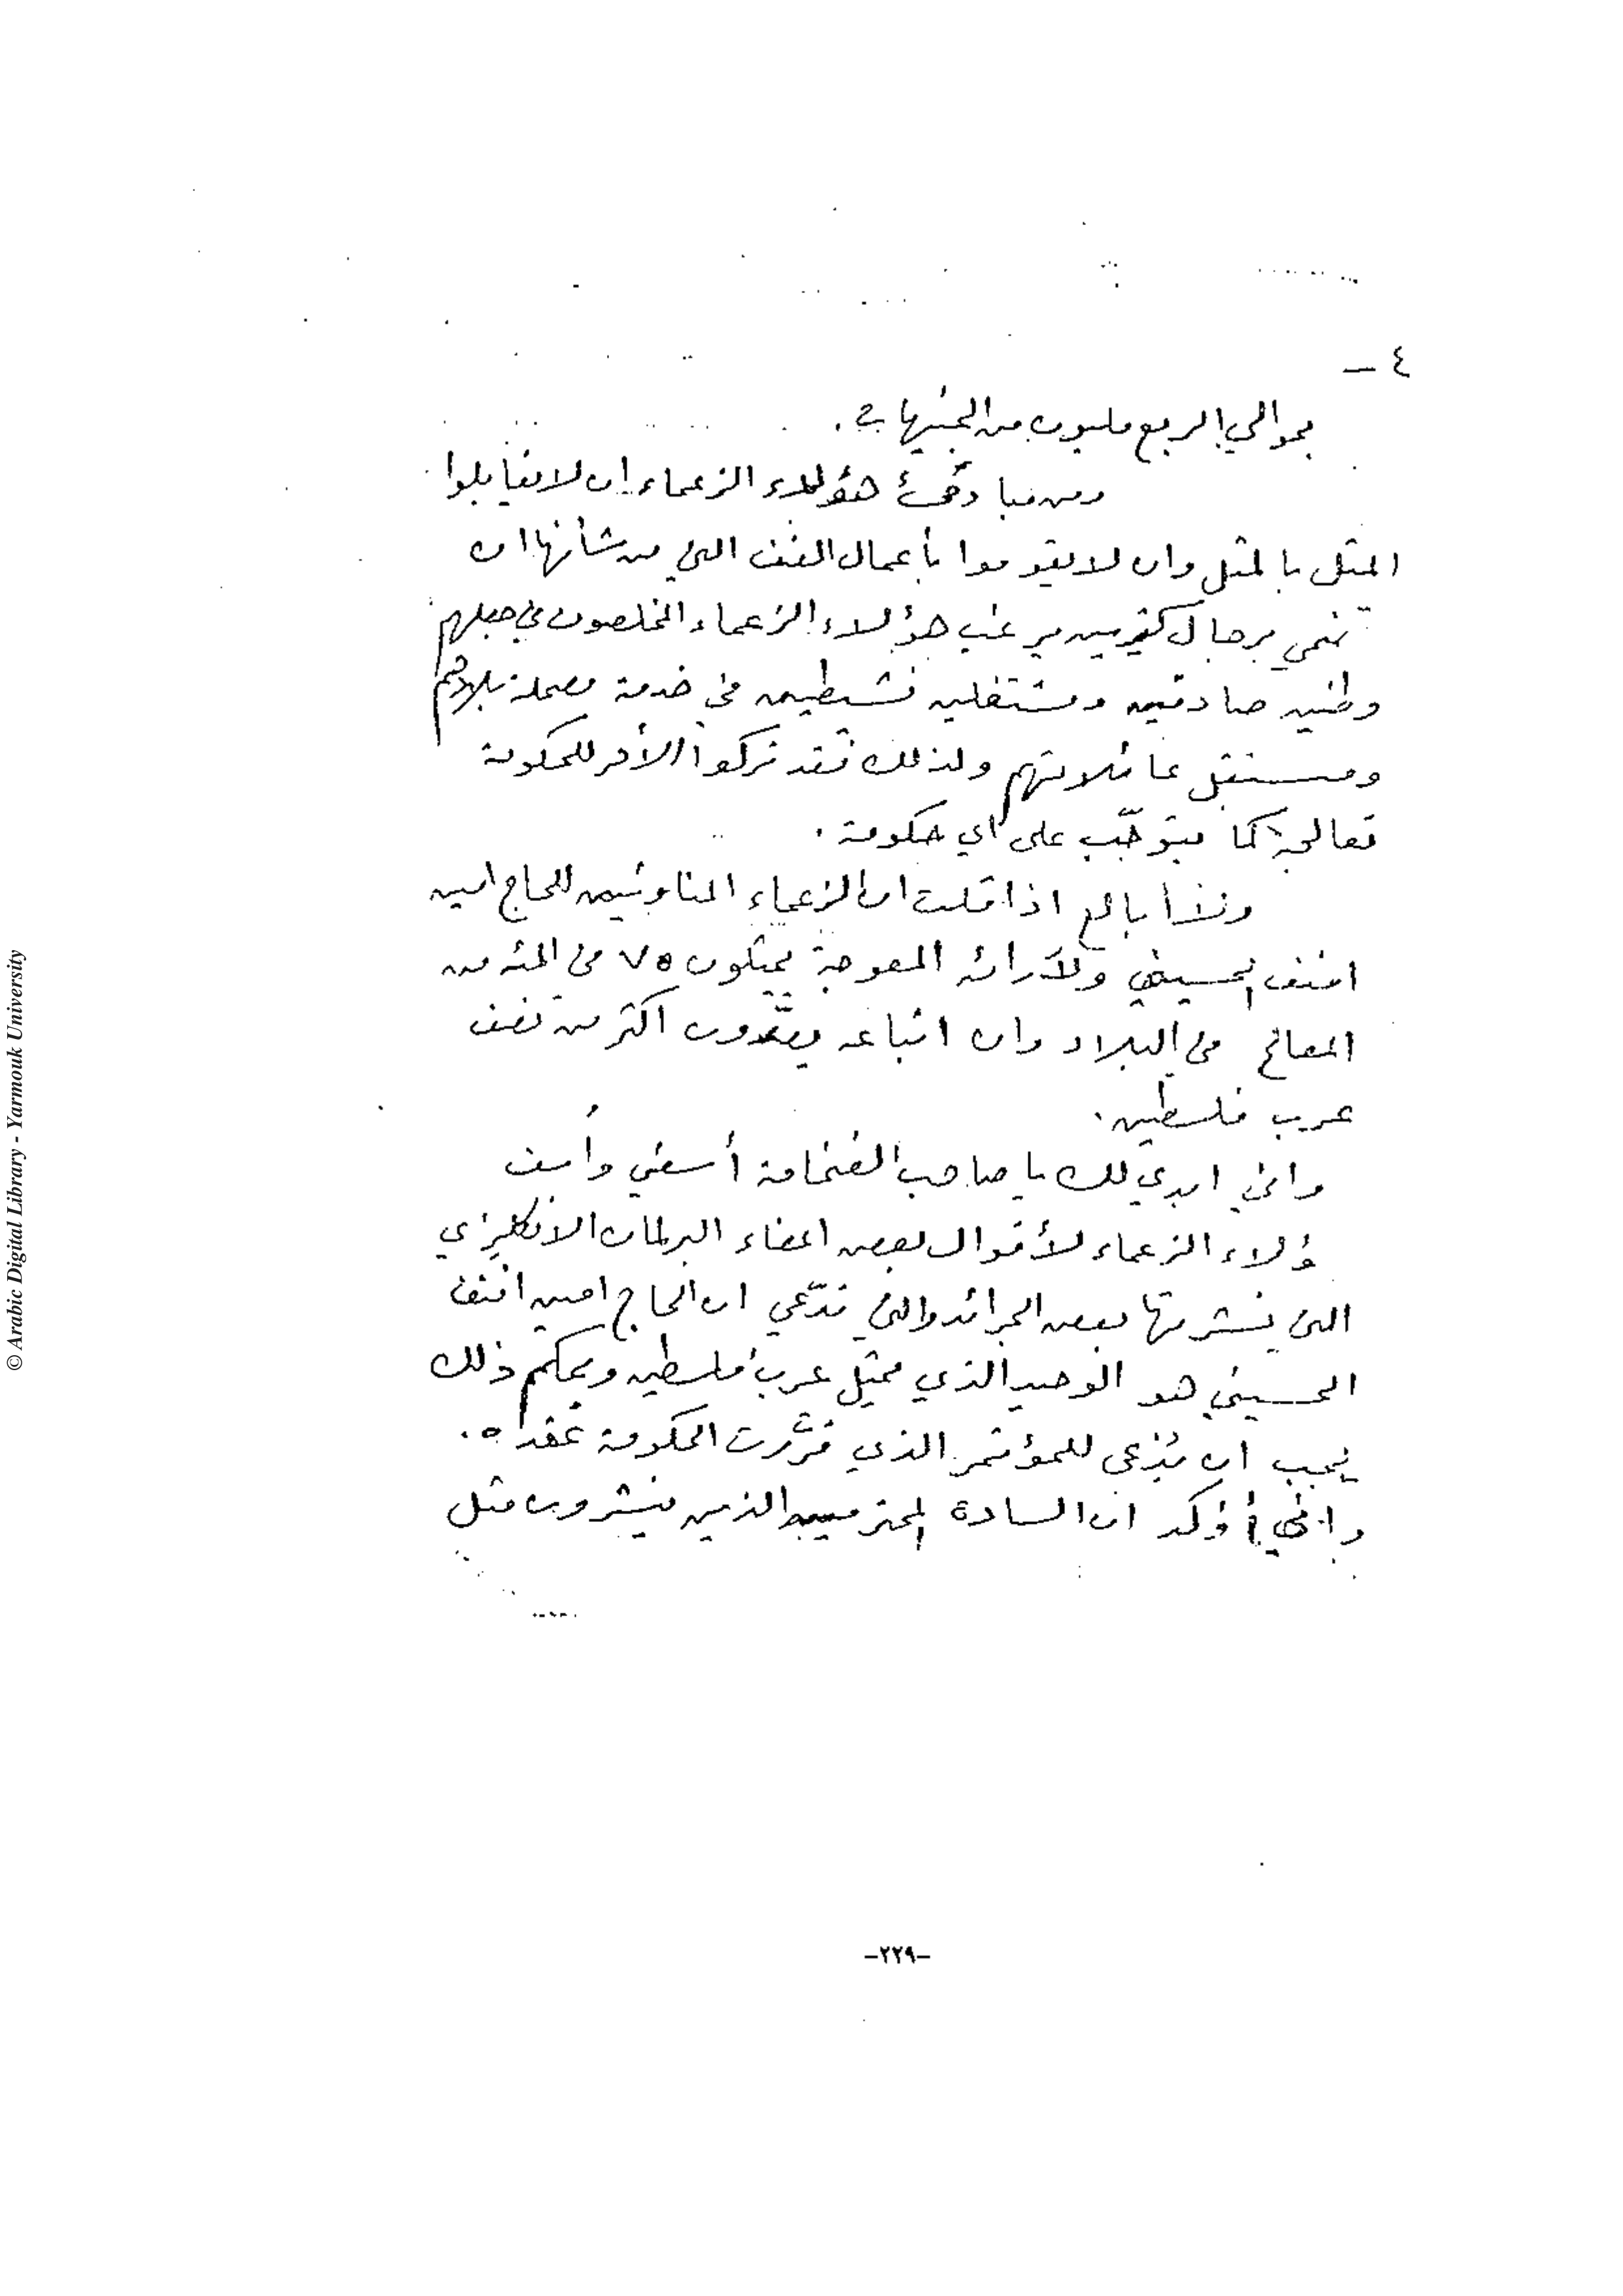 ٤ –
بحوالي الربع مليون من الجنيهات .
ومن مبادئ هؤلاء الزعماء ان لا يقابلوا
المثل بالمثل وان لا يقوموا بأعمال العنف التي من شأنها ان
تنمي برجال كثيرين يرغب هؤلاء الزعماء المخلصون في جعلهم
وطنيين صادقين ومشتغلين نشيطين في خدمة مصلحة بلادهم
ومستقبل عائلاتهم ولذلك فقد تركوا الأمر للحكومة
تعالجه كما يتوجّب على اي حكومة .
ولا أبالغ اذا قلت ان الزعماء المناوئين للحاج امين
افندي الحسيني ولآرائه المعوجة يمثلون ٧٥ في المئه من
المصالح في البلاد وان اتباعه يعدّون اكثر من نصف
عرب فلسطين .
واني ابدي لك يا صاحب الفخامة أسفي وأسف
ؤلاء الزعماء لأقوال بعض اعضاء البرلمان الانكليزي
التي نشرتها بعض الجرائد والتي تدّعي ان الحاج امين افندي
الحسيني هو الوحيد الذي يمثل عرب فلسطين وبحكم ذلك
يجب ان يُدعى للمؤتمر الذي قرَّرت الحكومة عقده .
واني أؤكد ان السادة المحترمين الذين ينشرون مثل
-٢٢٩-
© Arabic Digital Library - Yarmouk University